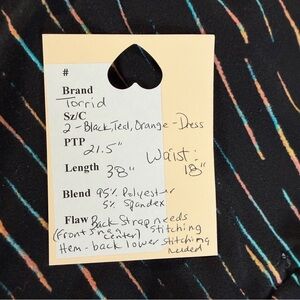 #
Brand
Torrid
Sz/C
2-Black, Teal, Orange-Dress
PTP
21.5"
Waist:
18"
Length 38"
Blend 95% Polyester
5% Spandex
Flaw Back Strap needs
(Front center) stitching
Hem-back lower stitching
needed